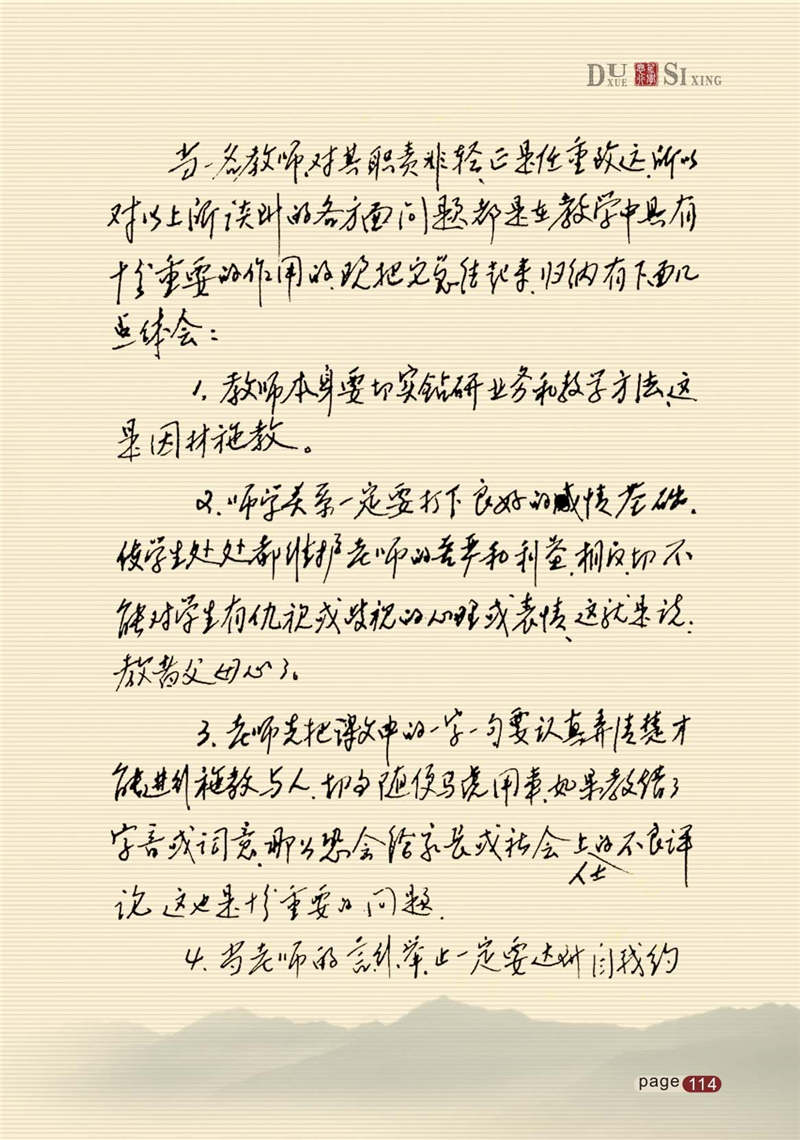 DU XUE SI XING
当一名教师,对其职责非轻,正是任重致远,所以
对以上所谈到的各方面问题都是在教学中具有
十分重要的作用的,现把它总结起来,归纳有下面几
点体会：
1. 教师本身要切实钻研业务和教学方法,这
是因材施教。
2. 师学关系一定要打下良好的感情基础,
使学生处处都维护老师的尊严和利益,相反,切不
能对学生有仇视或歧视的心理或表情,这就是说：
教者父母心了。
3. 老师先把课文中的一字一句要认真弄清楚才
能进行施教与人,切勿随便马虎用事,如果教错了
字音或词意,那么恐会给家长或社会上人士的不良评
论,这也是十分重要的问题.
4. 当老师的言行举止一定要达到自我约
page 114